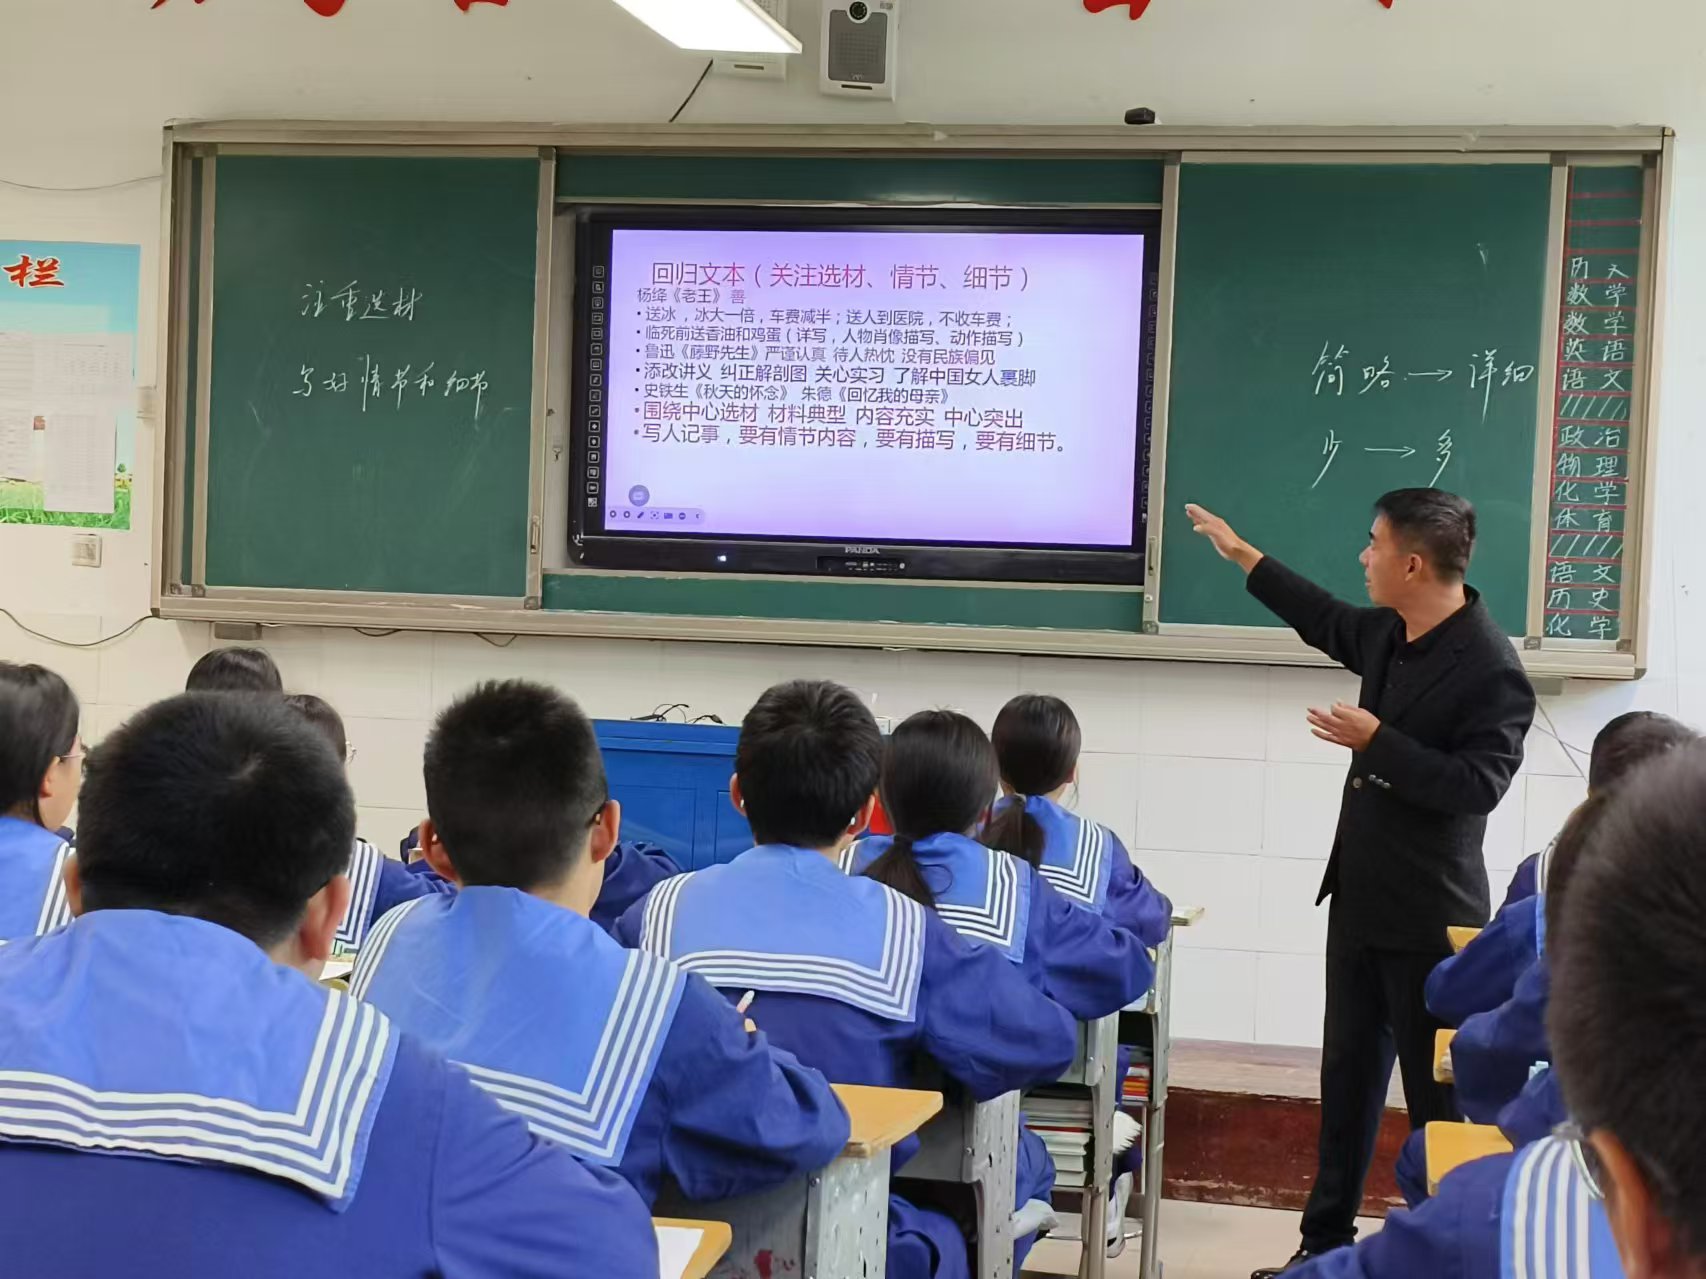 栏
注重选材
写好情节和细节
回归文本（关注选材、情节、细节）
杨绛《老王》 善
•送冰，冰大一倍，车费减半；送人到医院，不收车费；
•临死前送香油和鸡蛋（详写，人物肖像描写、动作描写）
•鲁迅《藤野先生》严谨认真 待人热忱 没有民族偏见
•添改讲义 纠正解剖图 关心实习 了解中国女人裹脚
•史铁生《秋天的怀念》 朱德《回忆我的母亲》
•围绕中心选材 材料典型 内容充实 中心突出
•写人记事，要有情节内容，要有描写，要有细节。
PANDA
简略→详细
少→多
数学
数学
英语
语文
/////
政治
物理
化学
体育
/////
语文
历史
化学